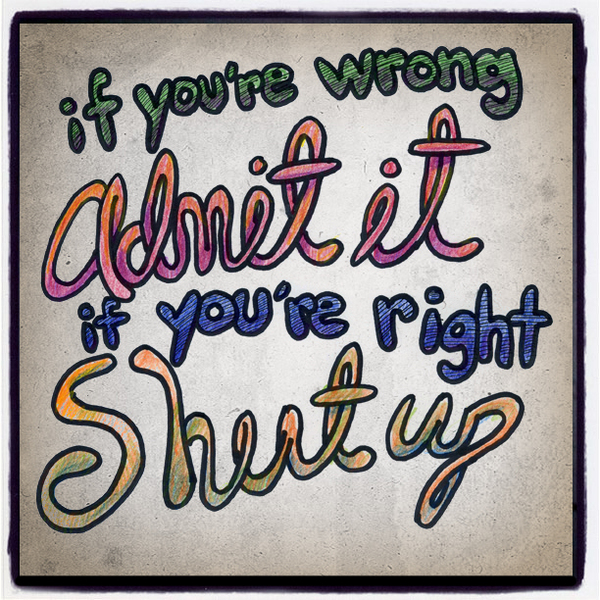 if you're wrong
Admit it
if you're right
Shut up